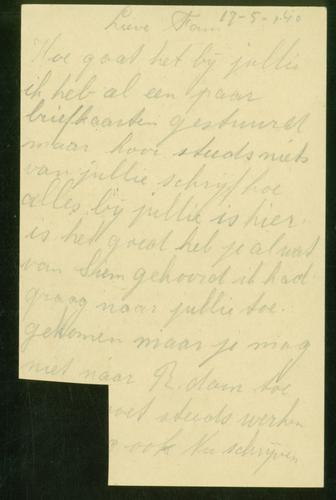 Lieve Fam 17-5-'40
Hoe gaat het bij jullie
ik heb al een paar
briefkaarten gestuurd
maar hoor steeds niets
van jullie schrijf hoe
alles bij jullie is hier
is het goed heb je al wat
van Siem gehoord ik had
graag naar jullie toe
gekomen maar je mag
niet naar R.dam toe
moet steeds werken
ook Nu schrijven